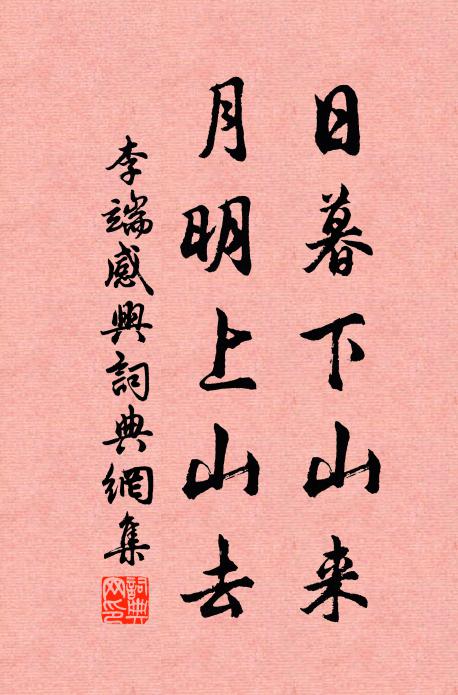 日暮下山来
月明上山去
李端感興詞典網集
詞典
网印